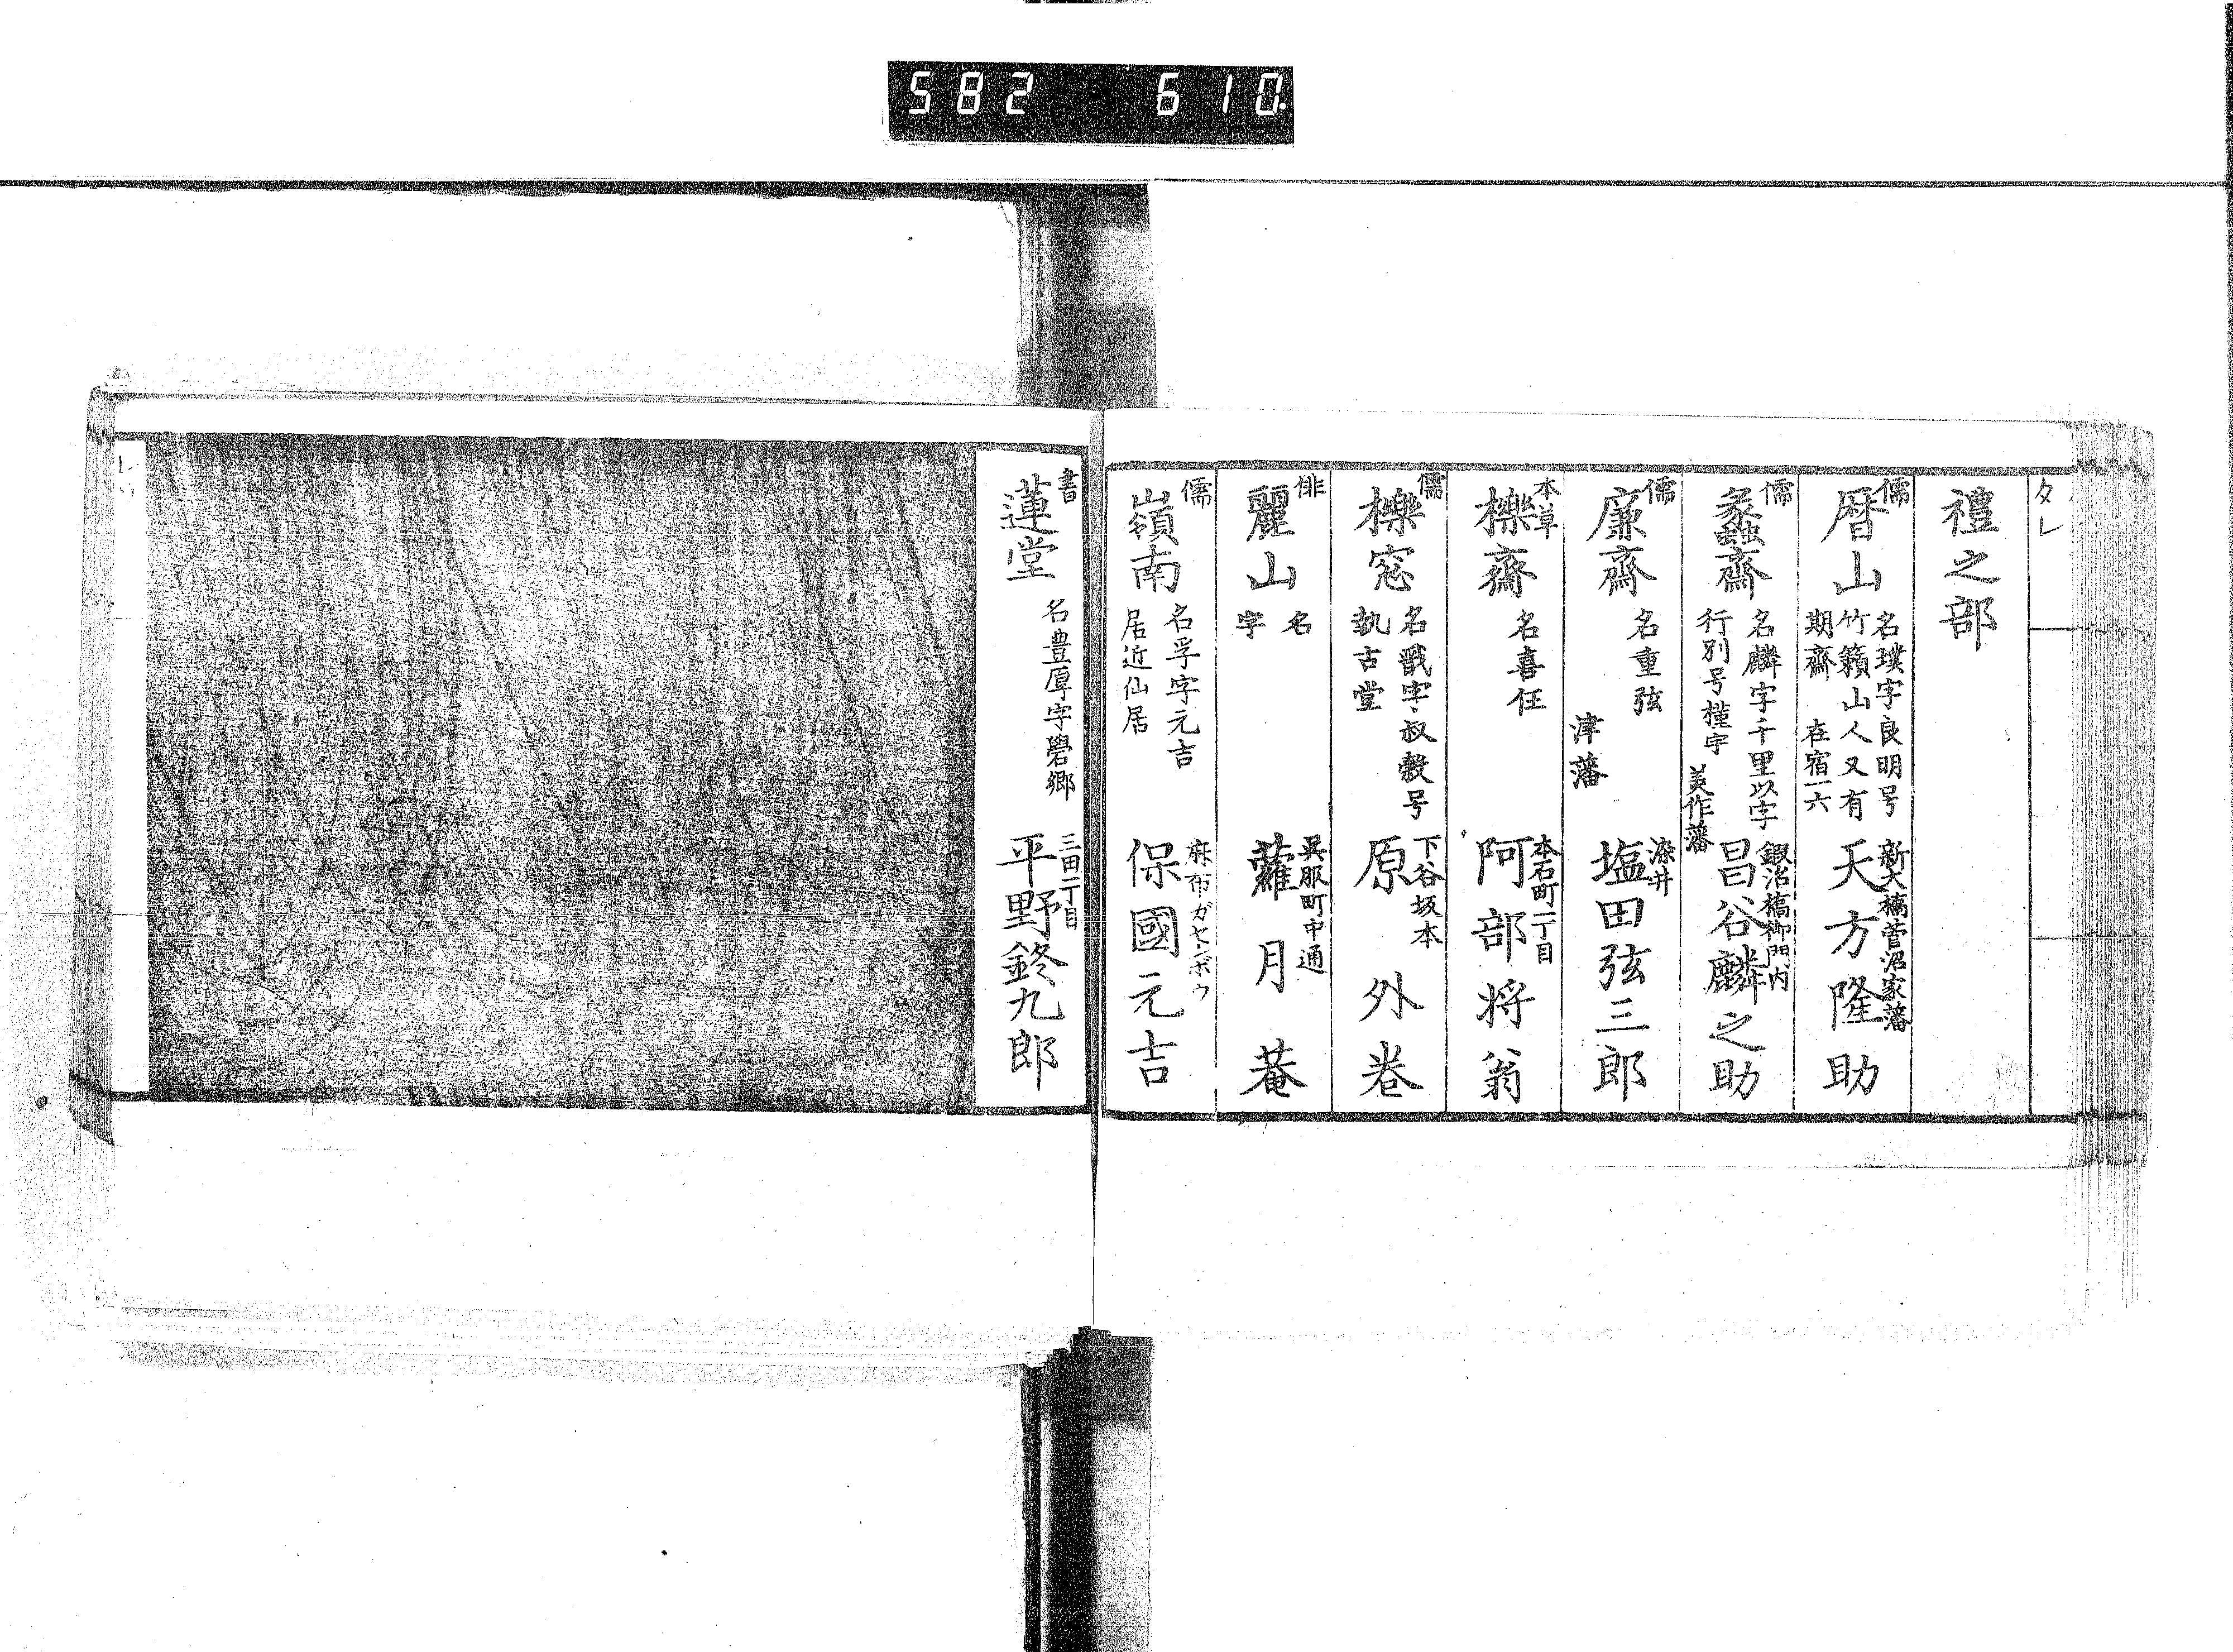 582 610.
タレ
禮之部
儒
暦山
名璞字良明号
竹籟山人又有
期齋 在宿一六
新大橋菅沼家藩
天方隆助
儒
蠡齋
名麟字千里以字
行別号槿宇
美作藩
鍜冶橋御門内
昌谷麟之助
儒
廉齋
名重弦
津藩
染井
塩田弦三郎
本草
櫟齋
名喜任
本石町一丁目
阿部将翁
儒
櫟窓
名戩字叔穀号
執古堂
下谷坂本
原外巻
俳
麗山
名
字
呉服町中通
蘿月菴
儒
嶺南
名孚字元吉
居近仙居
麻布ガゼンボウ
保國元吉
書
蓮堂
名豊厚字礐郷
三田一丁目
平野鉖九郎